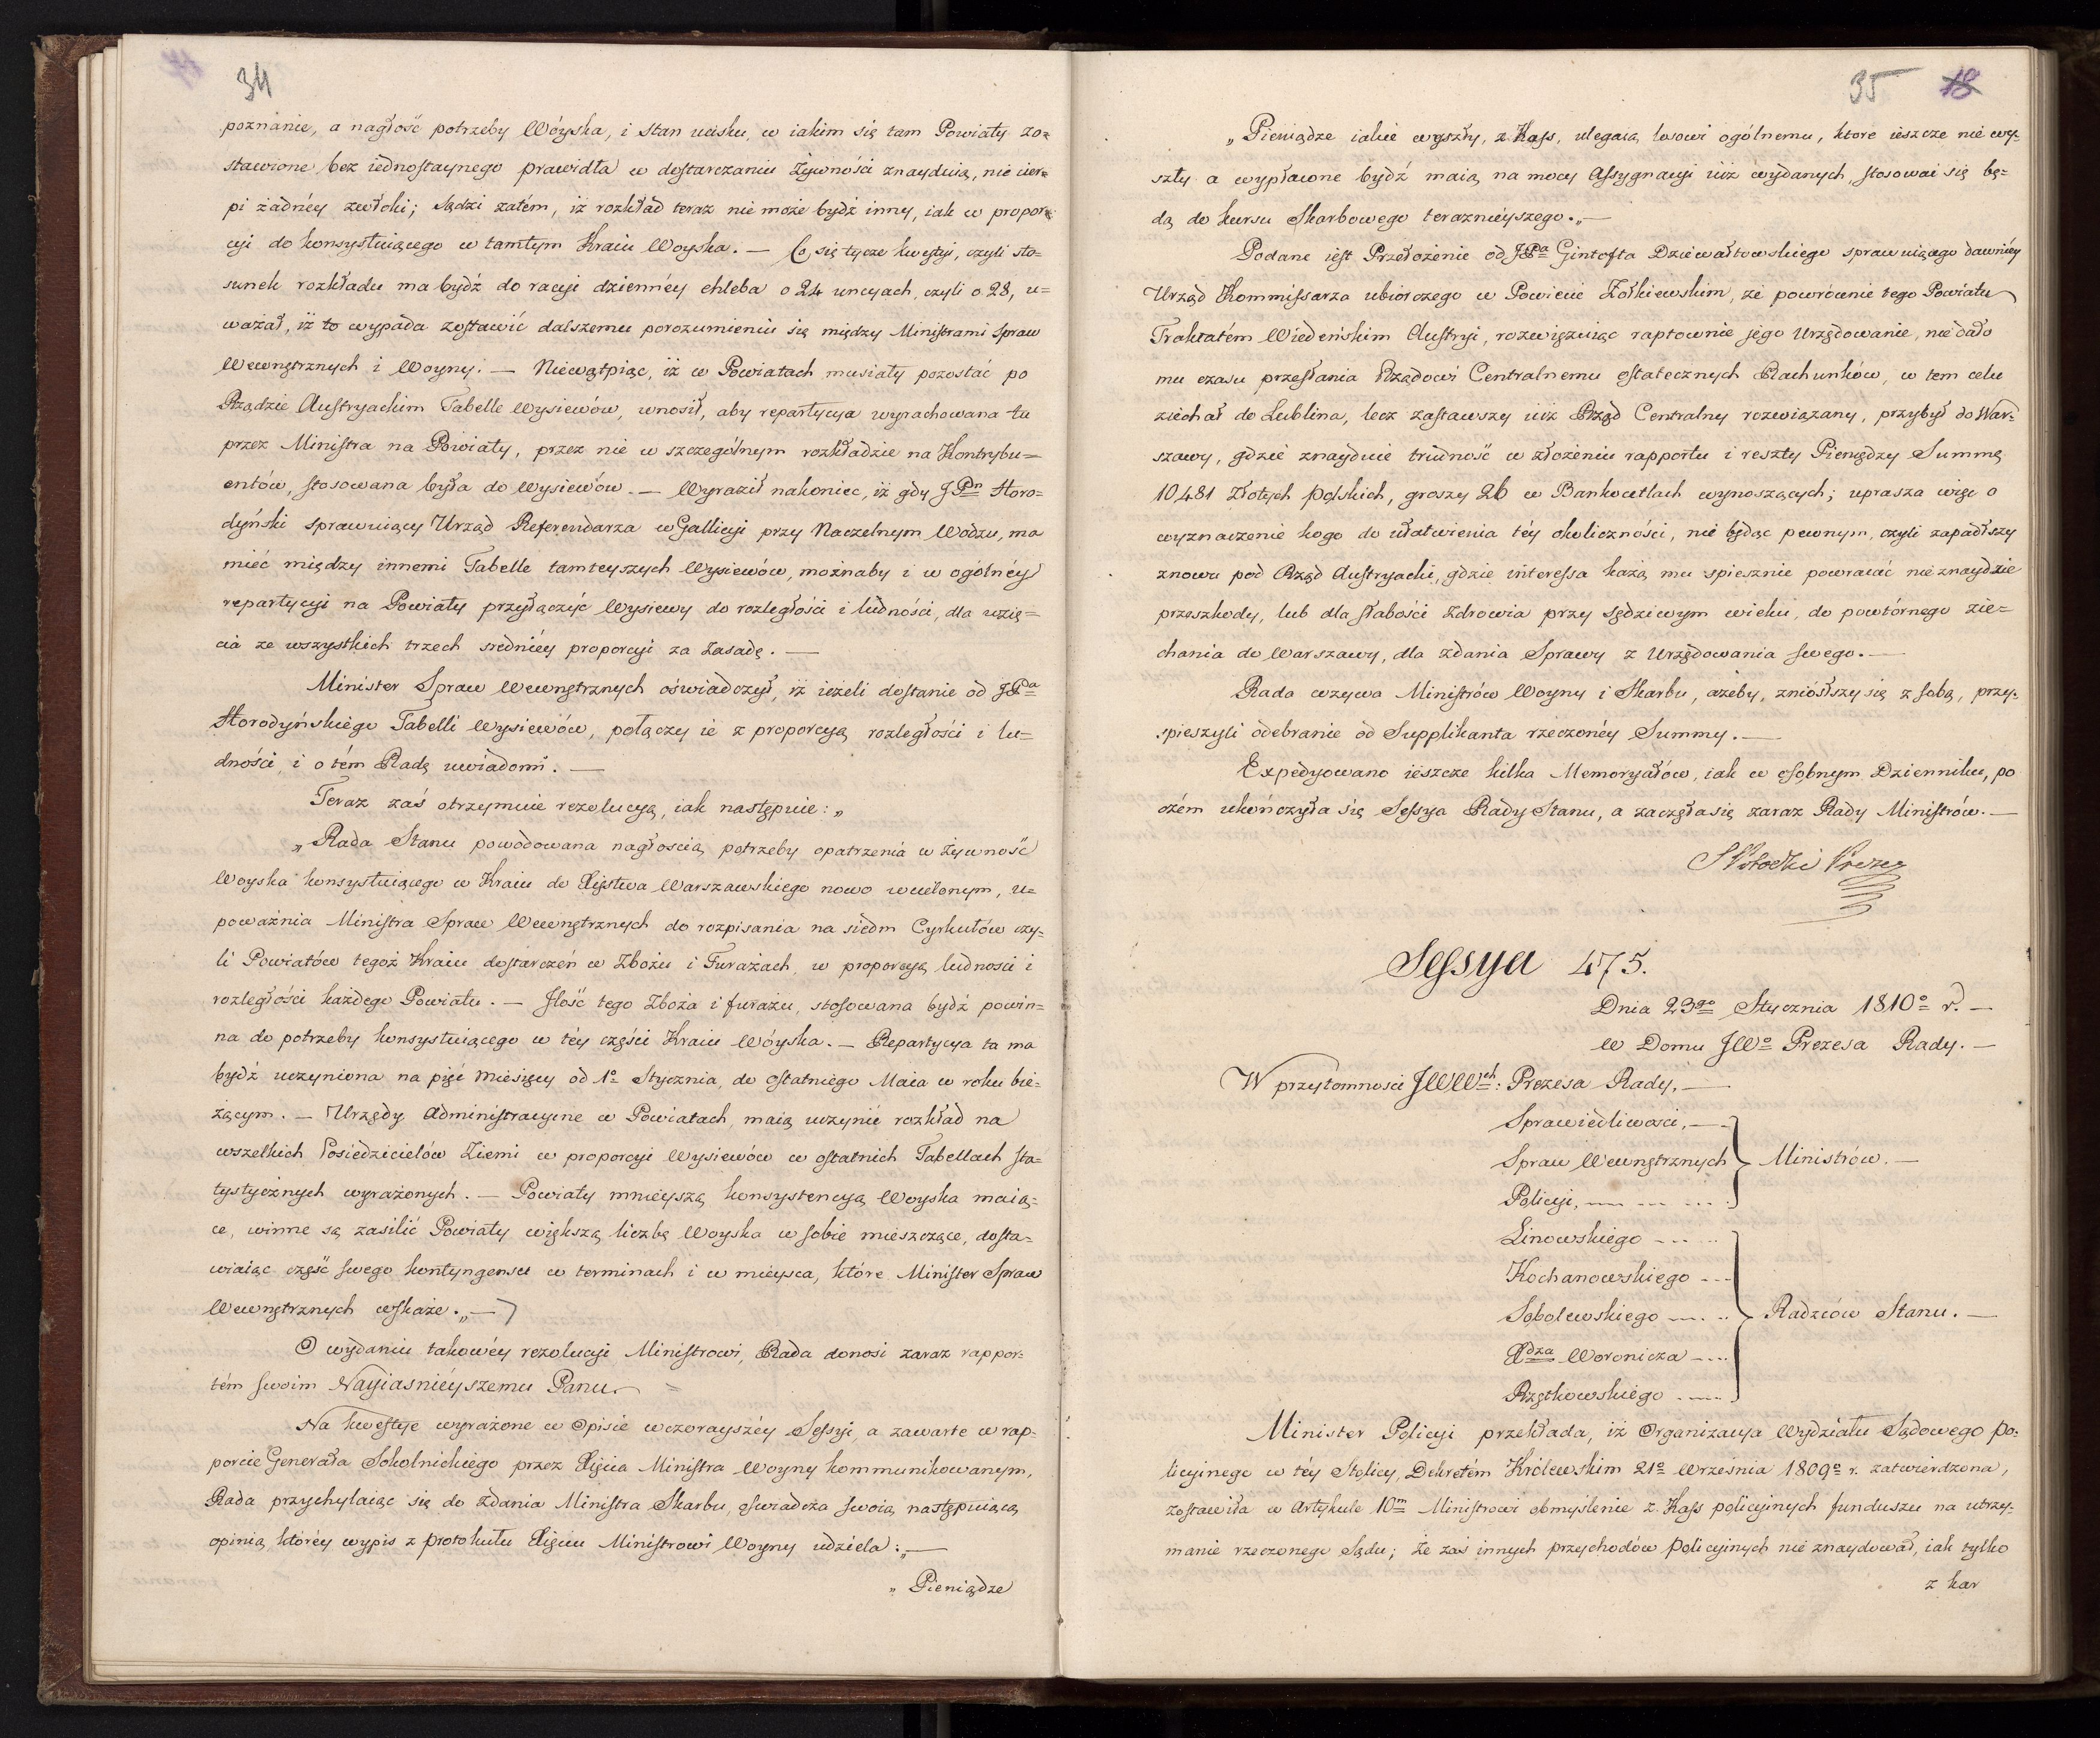 34
poznanie, a nagłość potrzeby Wóyska, i stan ucisku, w iakim się tam Powiaty zo=
stawione bez iednostaynego prawidła w dostarczaniu Żywności znayduią, nie cier=
pi żadnéy zwłoki; sądzi zatem, iż rozkład teraz nie może bydź inny, iak w propor=
cyi do konsystuiącego w tamtym Kraiu Woyska. — Co się tycze kwestyi, czyli sto=
sunek rozkładu ma bydź do racyi dziennéy chleba o 24 uncyach, czyli o 28, u=
ważał, iż to wypada zostawić dalszemu porozumieniu się między Ministrami Spraw
Wewnętrznych i Woyny. — Niewątpiąc, iż w Powiatach musiały pozostać po
Rządzie Austryackim Tabelle Wysiewów, wnosił, aby repartycya wyrachowana tu
przez Ministra na Powiaty, przez nie w szczególnym rozkładzie na Kontrybu=
entów, stosowana była do Wysiewów. — Wyraził nakoniec, iż gdy JPn Horo=
dyński sprawuiący Urząd Referendarza w Gallicyi przy Naczelnym Wodzu, ma
mieć między innemi Tabelle tamteyszych Wysiewów, możnaby i w ogólnéy
repartycyi na Powiaty przyłączyć Wysiewy do rozległości i ludności, dla wzię=
cia ze wszystkich trzech średniéy proporcyi za zasadę. —
Minister Spraw Wewnętrznych oświadczył, iż ieżeli dostanie od JPa
Horodyńskiego Tabelli Wysiewów, połączy ie z proporcyą rozległości i lu=
dności, i o tém Radę uwiadomi. —
Teraz zaś otrzymuie rezolucyą, iak następuie: „
„Rada Stanu powodowana nagłością potrzeby opatrzenia w żywność
Woyska konsystuiącego w Kraiu do Xięstwa Warszawskiego nowo wcielonym, u=
poważnia Ministra Spraw Wewnętrznych do rozpisania na siedm Cyrkułów czy=
li Powiatów tegoż Kraiu dostarczeń w Zbożu i Furażach, w proporcyą ludności i
rozległości każdego Powiatu. — Ilość tego Zboża i furażu, stosowana bydź powin=
na do potrzeby konsystuiącego w téy części Kraiu Wóyska. — Repartycya ta ma
bydź uczyniona na pięć Miesięcy od 1o Stycznia, do ostatniego Maia w roku bie=
żącym. — Urzędy Administracyine w Powiatach, maią uczynić rozkład na
wszelkich Posiedzicielów Ziemi w proporcyi Wysiewów w ostatnich Tabellach sta=
tystycznych wyrażonych. — Powiaty mnieyszą konsystencyą Woyska maią=
ce, winne są zasilić Powiaty większą liczbę Woyska w sobie mieszczące, dosta=
wiaiąc część swego kontyngensu w terminach i w mieysca, które Minister Spraw
Wewnętrznych wskaże.„—
O wydaniu takowéy rezolucyi Ministrowi, Rada donosi zaraz rappor=
tém swoim Nayiaśnieyszemu Panu. =
Na kwestye wyrażone w Opisie wczorayszéy Sessyi, a zawarte w rap=
porcie Generała Sokolnickiego przez Xięcia Ministra Woyny kommunikowanym,
Rada przychylaiąc się do zdania Ministra Skarbu, oświadcza swoią następuiącą
opinią, któréy wypis z protokułu Xięciu Ministrowi Woyny udziela: „—
„Pieniądze
35 18
„Pieniądze iakie wyszły, z Kass, ulegaią losowi ogólnemu, które ieszcze nie wy=
szły a wypłacone bydź maią na mocy Assygnacyi iuż wydanych, stosować się bę=
dą do kursu Skarbowego teraznieyszego.„—
Podane iest Przełożenie od JPa Gintofta Dziewałtowskiego sprawuiącego dawniéy
Urząd Kommissarza ubiorczego w Powiecie Żółkiewskim, że powrócenie tego Powiatu
Traktatém Wiedeńskim Austryi, rozwięzuiąc raptownie jego Urzędowanie, nie dało
mu czasu przesłania Rządowi Centralnemu ostatecznych Rachunków, w tem celu
ziechał do Lublina, lecz zastawszy iuż Rząd Centralny rozwiązany, przybył do War=
szawy, gdzie znayduie trudność w złożeniu rapportu i reszty Pieniędzy Summę
10,481 Złotych Polskich, groszy 26 w Bankocetlach wynoszących; uprasza więc o
wyznaczenie kogo do ułatwienia téy okoliczności, nie będąc pewnym, czyli zapadłszy
znowu pod Rząd Austryacki, gdzie interessa każą mu spiesznie powracać nie znaydzie
przeszkody, lub dla słabości zdrowia przy sędziwym wieku, do powtórnego zie=
chania do Warszawy, dla zdania Sprawy z Urzędowania swego. —
Rada wzywa Ministrów Woyny i Skarbu, ażeby, zniósłszy się z sobą, przy=
spieszyli odebranie od Supplikanta rzeczonéy Summy. —
Expedyowano ieszcze kilka Memoryałów, iak w osobnym Dzienniku, po
czém ukończyła się Sessya Rady Stanu, a zaczęła się zaraz Rady Ministrów. —
S Potocki Prezes
Sessya 475.
Dnia 23go Stycznia 1810o r. —
w Domu JWo Prezesa Rady. —
W przytomnosci JWWch: Prezesa Rady, —
Sprawiedliwosci, —
Spraw Wewnętrznych Ministrów. —
Policyi,
Linowskiego
Kochanowskiego
Sobolewskiego Radzców Stanu. —
Xdza Woronicza
Rzętkowskiego
Minister Policyi przekłada, iż Organizacya Wydziału Sądowego po=
licyinego w téy Stolicy, Dekretém Królewskim 21o Września 1809o r. zatwierdzona,
zostawiła w Artykule 10m Ministrowi obmyślenie z Kass policyinych funduszu na utrzy=
manie rzeczonego Sądu; że zaś innych przychodów policyinych nie znaydował, iak tylko
z kar